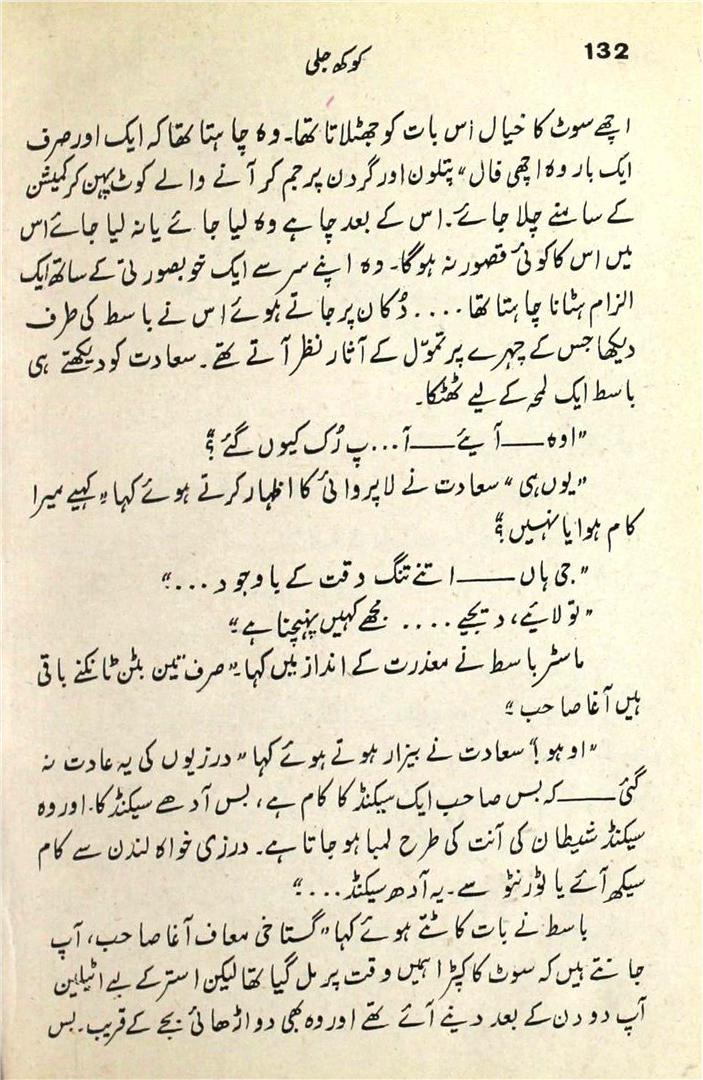 132
کوکھ جلی
اچھے سوٹ کا خیال اس بات کو جھٹلاتا تھا۔ وہ چاہتا تھا کہ ایک اور صرف
ایک بار وہ اچھی فال، پتلون اور گردن پر جم کر آنے والے کوٹ پہن کر کمیشن
کے سامنے چلا جائے۔ اس کے بعد چاہے وہ لیا جائے یا نہ لیا جائے اس
میں اس کا کوئی قصور نہ ہوگا۔ وہ اپنے سر سے ایک خوبصورتی کے ساتھ ایک
الزام ہٹانا چاہتا تھا.... دُکان پر جاتے ہوئے اس نے باسط کی طرف
دیکھا جس کے چہرے پر تموّل کے آثار نظر آتے تھے۔ سعادت کو دیکھتے ہی
باسط ایک لمحہ کے لیے ٹھٹکا۔
"اوہ——آیئے——آ...پ رُک کیوں گئے؟"
"یوں ہی" سعادت نے لاپروائی کا اظہار کرتے ہوئے کہا "کہیے میرا
کام ہوا یا نہیں؟"
"جی ہاں——اتنے تنگ وقت کے باوجود..."
"تو لائیے، دیجیے.... مجھے کہیں پہنچنا ہے"
ماسٹر باسط نے معذرت کے انداز میں کہا۔ "صرف تین بٹن ٹانکنے باقی
ہیں آغا صاحب"
"اوہو!" سعادت نے بیزار ہوتے ہوئے کہا "درزیوں کی یہ عادت نہ
گئی——کہ بس صاحب ایک سیکنڈ کا کام ہے، بس آدھے سیکنڈ کا۔ اور وہ
سیکنڈ شیطان کی آنت کی طرح لمبا ہو جاتا ہے۔ درزی خواہ لندن سے کام
سیکھ آئے یا ٹورنٹو سے۔ یہ آدھ سیکنڈ..."
باسط نے بات کاٹتے ہوئے کہا "گستاخی معاف آغا صاحب، آپ
جانتے ہیں کہ سوٹ کا کپڑا ہمیں وقت پر مل گیا تھا لیکن استر کے لیے اٹیلین
آپ دو دن کے بعد دینے آئے تھے اور وہ بھی دو اڑھائی بجے کے قریب۔ بس